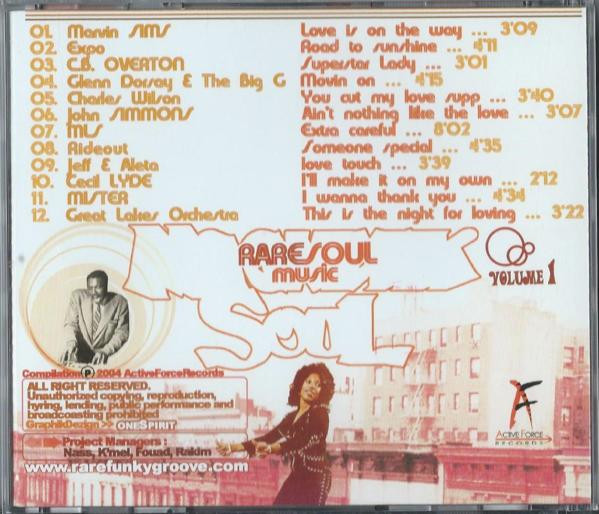 01. Marvin SIMS Love is on the way ... 3'09
02. Expo Road to sunshine ... 4'11
03. C.B. OVERTON Superstar Lady ... 3'01
04. Glenn Dorsay & The Big G Movin on ... 4'15
05. Charles Wilson You cut my love supp ... 3'40
06. John SIMMONS Ain't nothing like the love ... 3'07
07. MLS Extra careful ... 8'02
08. Rideout Someone special ... 4'35
09. Jeff & Aleta love touch ... 3'39
10. Cecil LYDE I'll make it on my own ... 2'12
11. MISTER I wanna thank you ... 4'34
12. Great Lakes Orchestra This is the night for loving ... 3'22
RARESOUL
MUSIC
VOLUME 1
SOUL
Compilation ℗ 2004 ActiveForceRecords
ALL RIGHT RESERVED.
Unauthorized copying, reproduction,
hyring, lending, public performance and
broadcoasting prohibited
GraphikDezign >> ONESPIRIT
Project Managers :
Nass, K'mel, Fouad, Rakim
www.rarefunkygroove.com
AF
ACTIVE FORCE
RECORDS